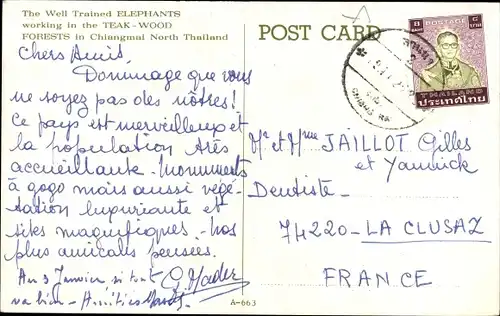 The Well Trained ELEPHANTS
working in the TEAK-WOOD
FORESTS in Chiangmai North Thailand
Chers Amis.
Dommage que vous
ne soyez pas des nôtres!
Ce pays est merveilleux et
la population très
accueillante. Monuments
à gogo mais aussi végé-
tation luxuriante et
sites magnifiques. Nos
plus amicales pensées.
Au 3 Janvier si tout
va bien - Amitiés
A-663
POST CARD
8
POSTAGE
THAILAND
ประเทศไทย
Mr et Mme JAILLOT Gilles
et Yannick
Dentiste.
74220 - LA CLUSAZ
FRANCE